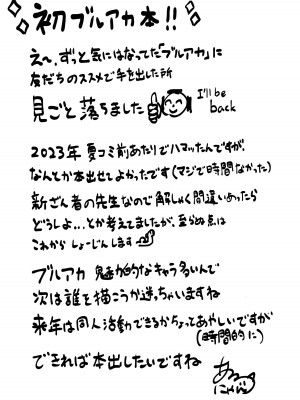 初ブルアカ本!!
え〜、ずっと気にはなってた「ブルアカ」に
友だちのススメで手を出した所
見ごと落ちました
I'll be
back
2023年 夏コミ前あたりでハマッたんですが、
なんとか本出せてよかったです(マジで時間なかった)
新ざん者の先生なので解しゃく間違いあったら
どうしよ...とか考えてましたが、至らぬ点は
これからしょーじんします
ブルアカ 魅力的なキャラ多いんで
次は誰を描こうか迷っちゃいますね
来年は同人活動できるかちょっとあやしいですが
(時間的に)
できれば本出したいですね